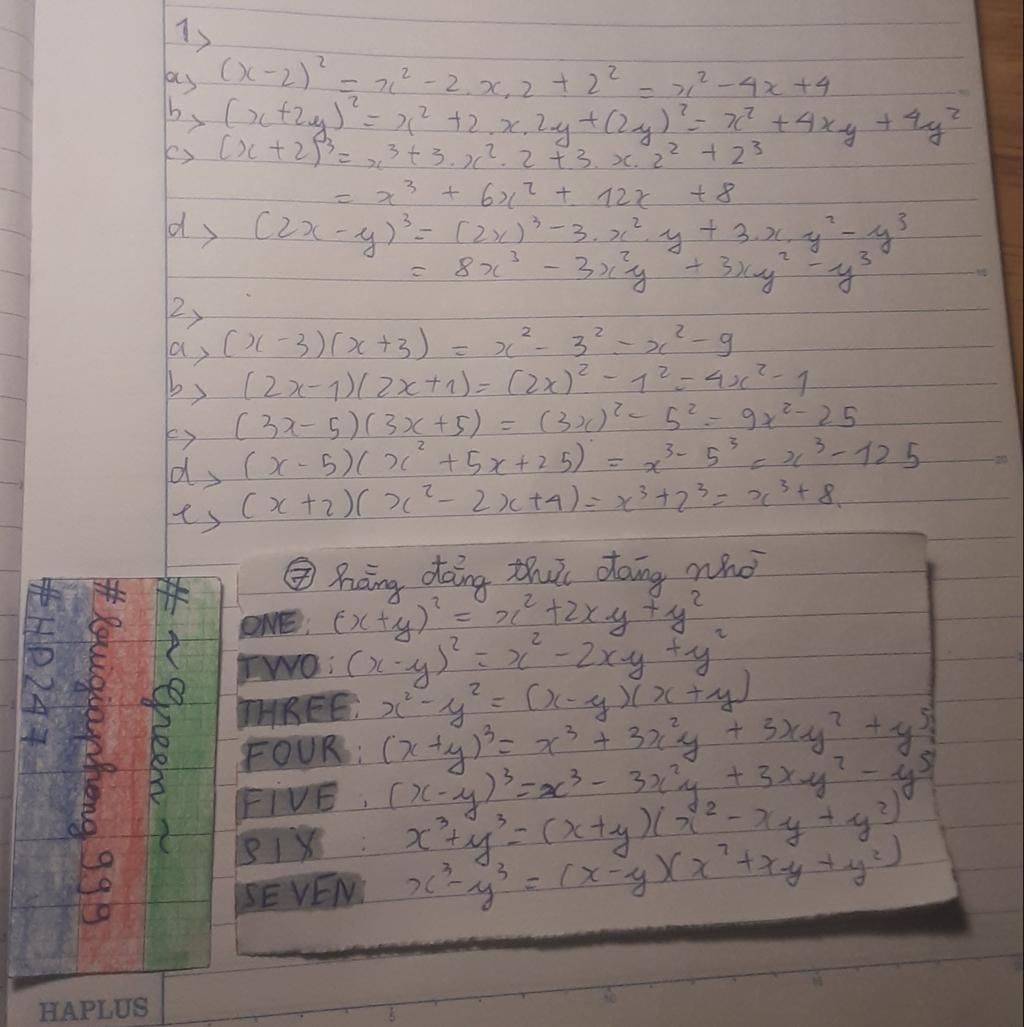 1>
a> (x-2)² = x² - 2.x.2 + 2² = x² - 4x + 4
b> (x+2y)² = x² + 2.x.2y + (2y)² = x² + 4xy + 4y²
c> (x+2)³ = x³ + 3.x².2 + 3.x.2² + 2³
= x³ + 6x² + 12x + 8
d> (2x-y)³ = (2x)³ - 3.x².y + 3.x.y² - y³
= 8x³ - 3x²y + 3xy² - y³
2>
a> (x-3)(x+3) = x² - 3² = x² - 9
b> (2x-1)(2x+1) = (2x)² - 1² = 4x² - 1
c> (3x-5)(3x+5) = (3x)² - 5² = 9x² - 25
d> (x-5)(x²+5x+25) = x³ - 5³ = x³ - 125
e> (x+2)(x²-2x+4) = x³ + 2³ = x³ + 8.
⑦ hằng đẳng thức đáng nhớ
ONE: (x+y)² = x² + 2xy + y²
TWO: (x-y)² = x² - 2xy + y²
THREE: x² - y² = (x-y)(x+y)
FOUR: (x+y)³ = x³ + 3x²y + 3xy² + y³
FIVE: (x-y)³ = x³ - 3x²y + 3xy² - y³
SIX: x³ + y³ = (x+y)(x² - xy + y²)
SEVEN: x³ - y³ = (x-y)(x² + xy + y²)
# ~ Green ~
# louiginpheng 999
# HD247
HAPLUS
5
10
15